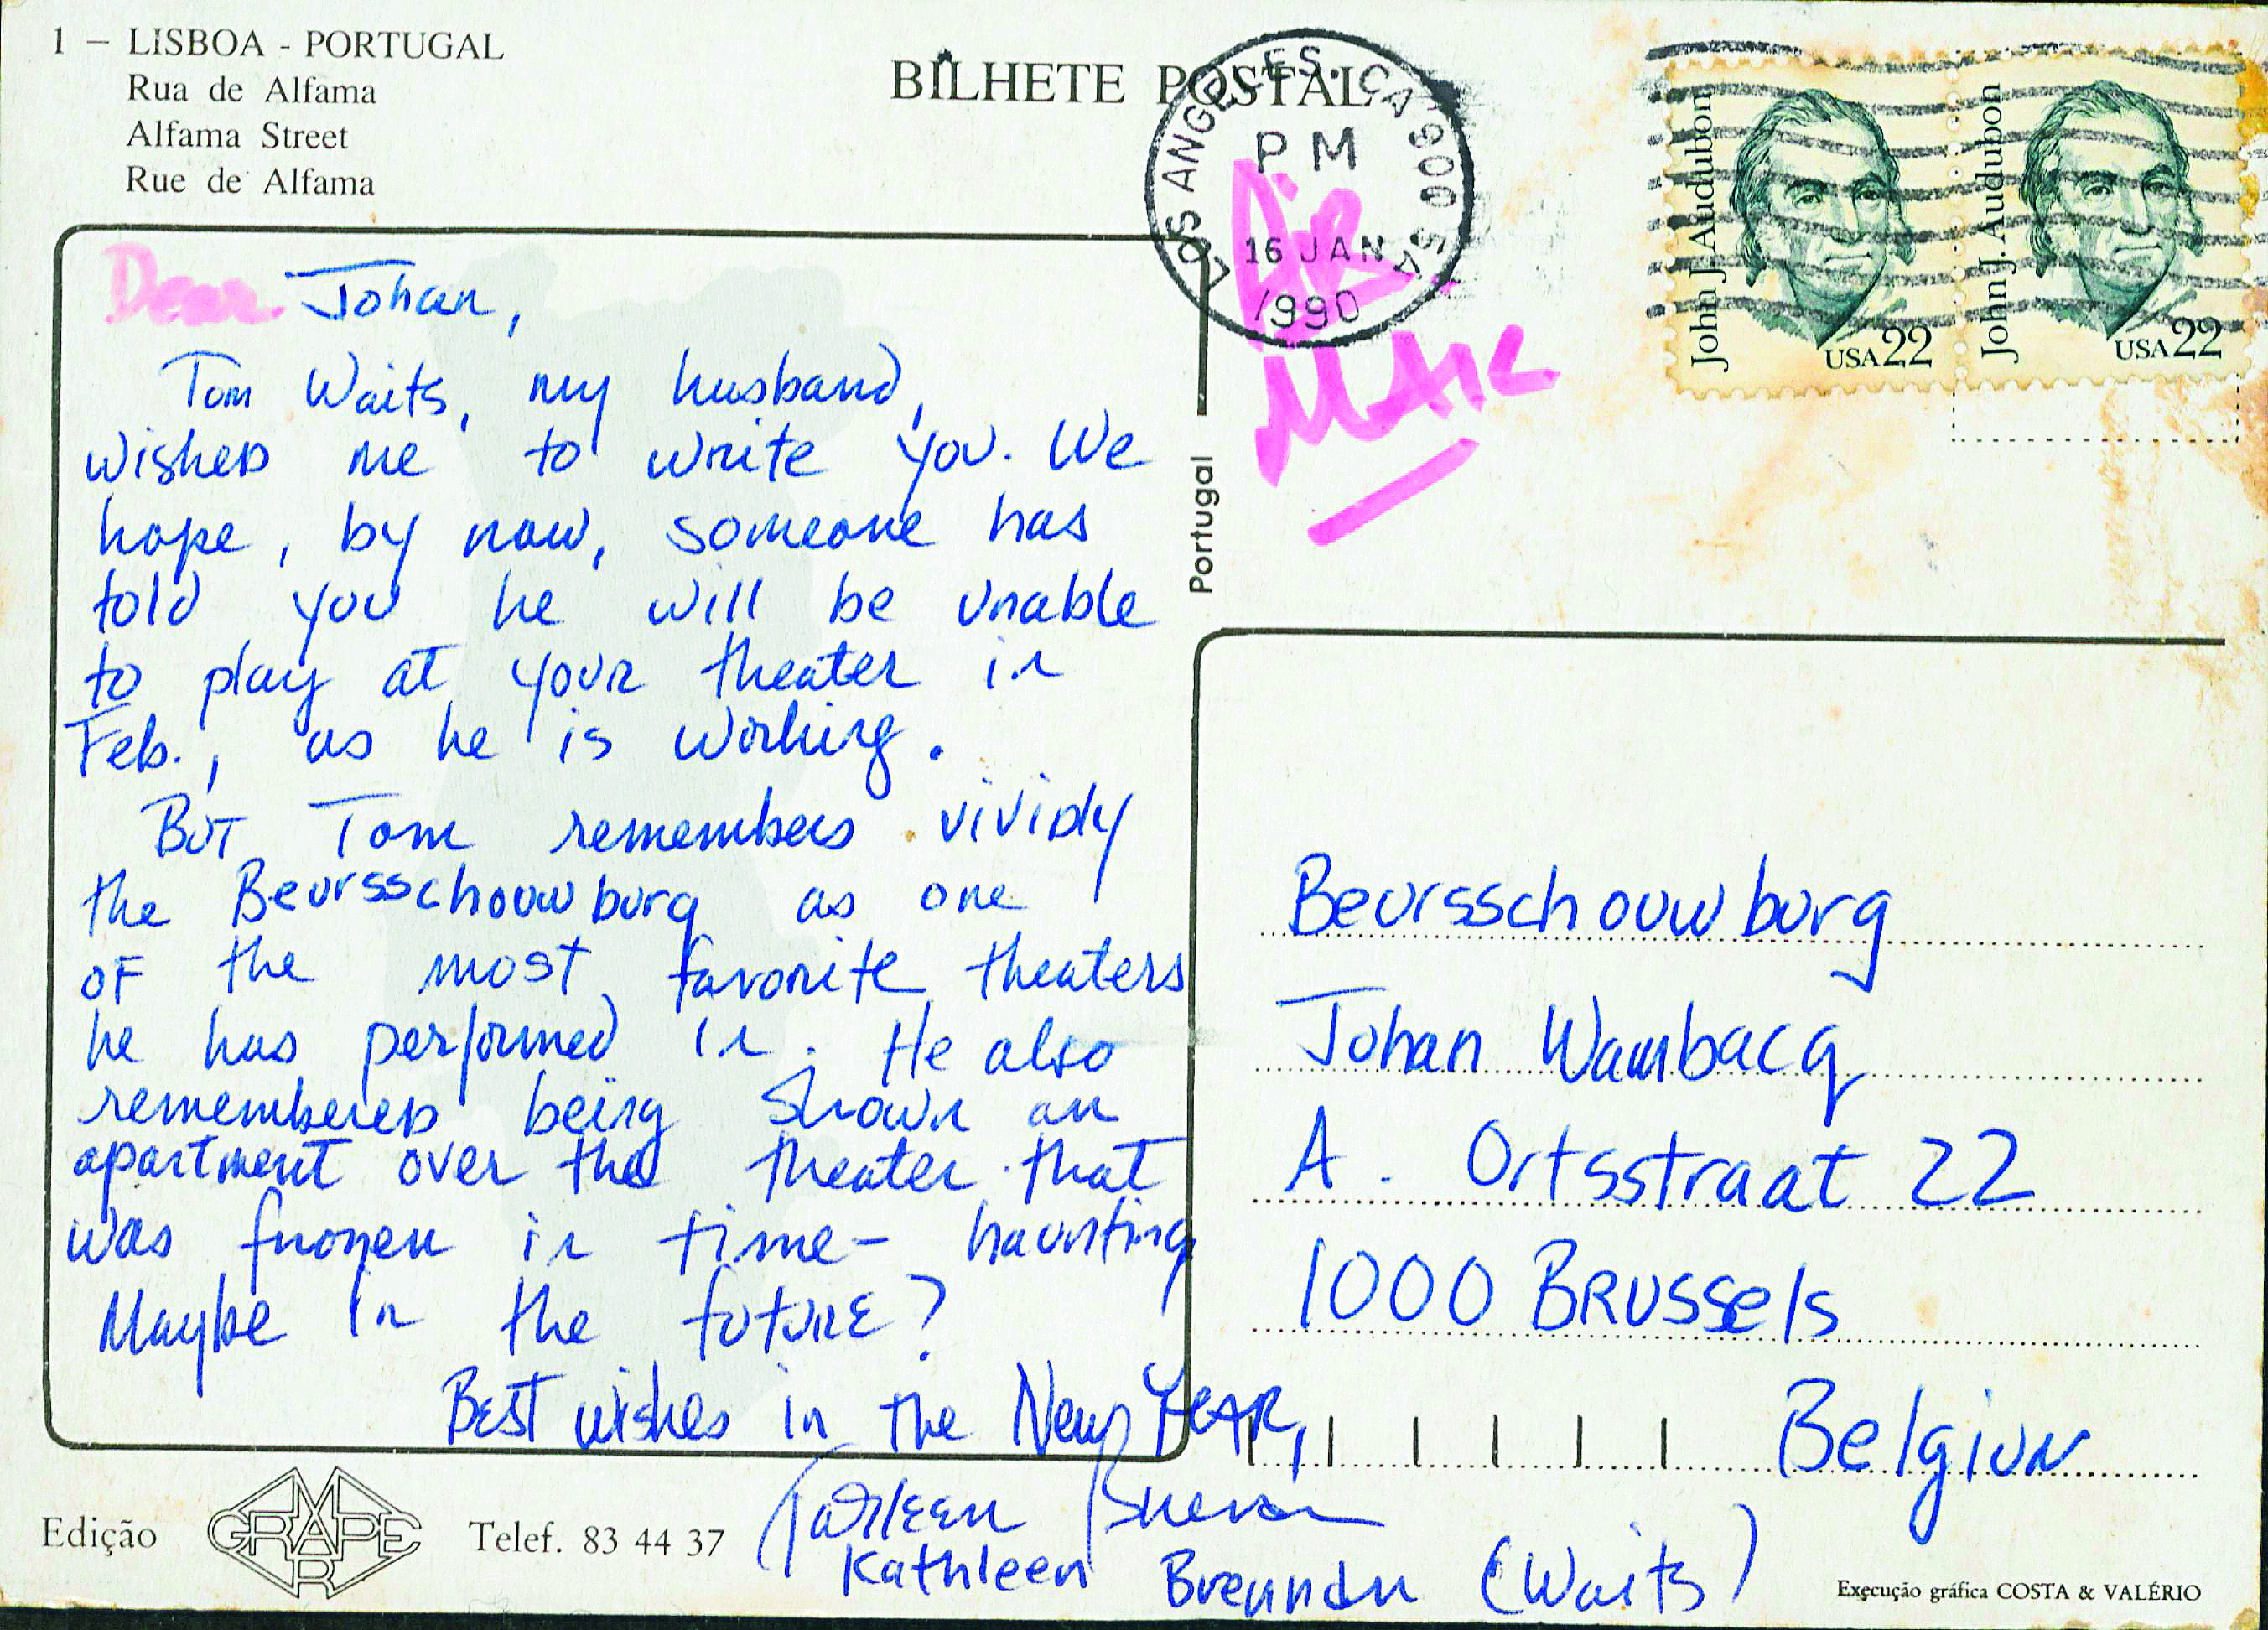 1 – LISBOA - PORTUGAL
Rua de Alfama
Alfama Street
Rue de Alfama
BILHETE POSTAL
LOS ANGELES, CA 900
PM
16 JAN
1990
AIR
MAIL
John J. Audubon
USA 22
John J. Audubon
USA 22
Dear Johan,
Tom Waits, my husband,
wished me to write you. We
hope, by now, someone has
told you he will be unable
to play at your theater in
Feb., as he is working.
But Tom remembers vividly
the Beursschouwburg as one
of the most favorite theaters
he has performed in. He also
remembered being shown an
apartment over the theater that
was frozen in time – haunting
Maybe in the future?
Best wishes in the New Year,
Kathleen Brennan
Kathleen Brennan (Waits)
Portugal
Beursschouwburg
Johan Wambacq
A. Ortsstraat 22
1000 BRUSSels
Belgium
Edição
GRAPE
MAR
Telef. 83 44 37
Execução gráfica COSTA & VALÉRIO